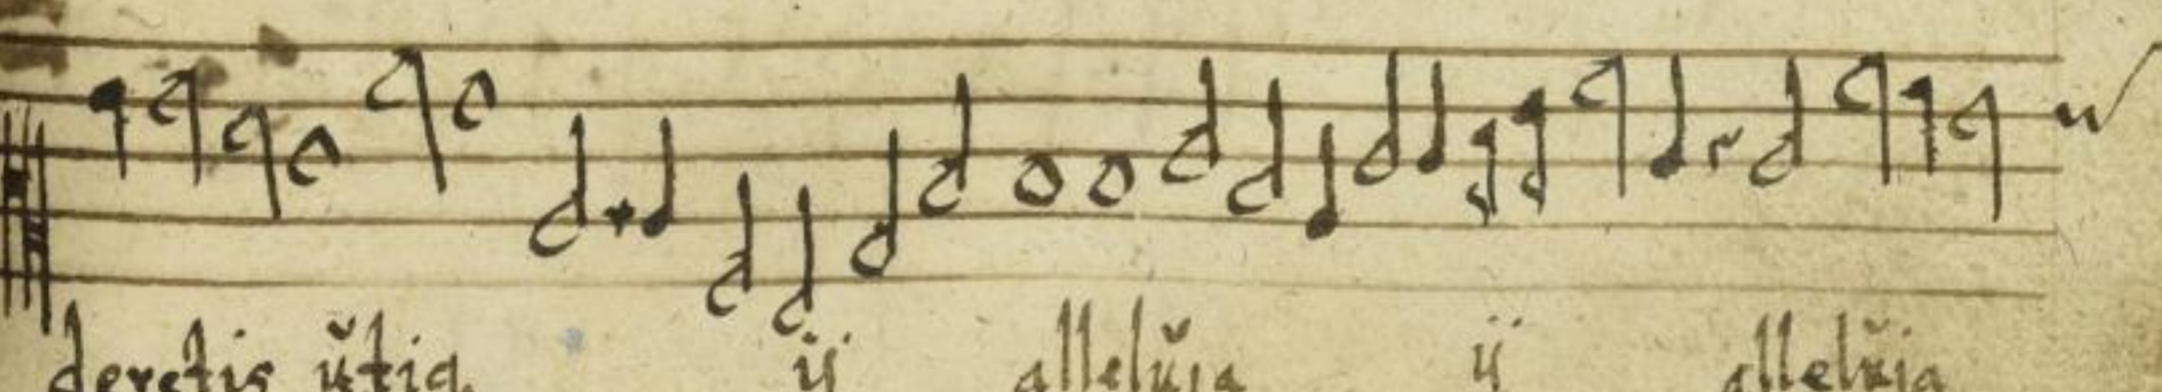 deretis ŭtiq. ij allelŭia ij allelŭia